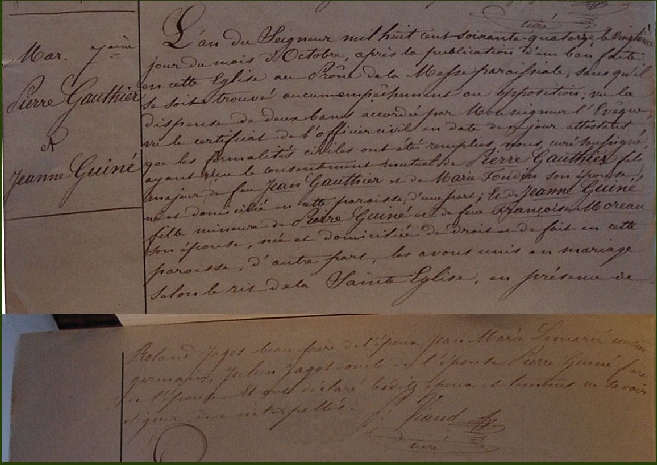 curé
Mar. 7ème
Pierre Gauthier
et
Jeanne Guiné
L'an du Seigneur mil huit cent soixante-quatorze, le vingtième
jour du mois d'Octobre, après la publication d'un ban faite
en cette Eglise au Prône de la Messe paroissiale, sans qu'il
se soit trouvé aucun empêchement ou opposition, vu la
dispense de deux bans accordée par Monseigneur l'Evêque,
vu le certificat de l'officier civil en date de ce jour attestant
que les formalités civiles ont été remplies, nous, curé soussigné,
ayant reçu le consentement mutuel de Pierre Gauthier fils
majeur de feu Jean Gauthier et de Marie son épouse,
né et domicilié en cette paroisse, d'une part; Et de Jeanne Guiné
fille mineure de Pierre Guiné et de feue Françoise Moreau
son épouse, née et domiciliée de droit et de fait en cette
paroisse, d'autre part, les avons unis en mariage
selon le rit de la Sainte Eglise, en présence de
Roland Jagot beau frère de l'époux, Jean Marie Lemarié cousin
germain, Julien Jagot oncle de l'épouse, Pierre Guiné frère
de l'épouse Et ont déclaré lesdits époux et témoins ne savoir
signer de ce interpellés.
curé